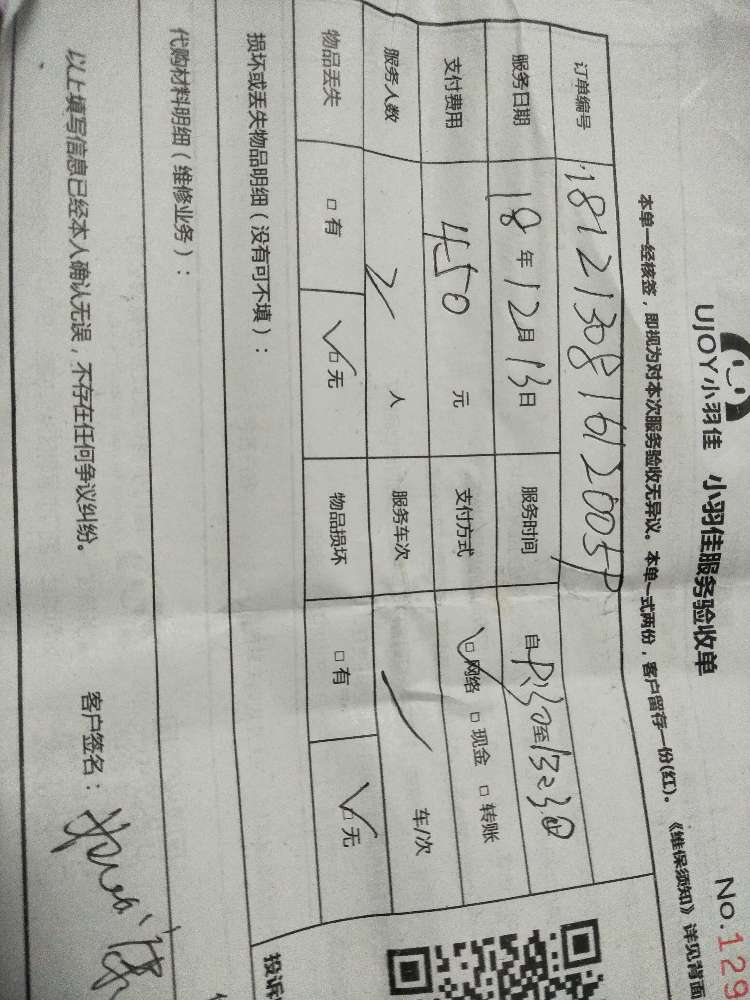 UJOY小羽佳 小羽佳服务验收单
No.129
本单一经核签，即视为对本次服务验收无异议。本单一式两份，客户留存一份(红)。《维保须知》详见背面
订单编号 181213081612005P
服务日期 18年12月13日 服务时间 自 至
支付费用 450 元 支付方式 □网络 □现金 □转账
服务人数 2 人 服务车次 / 车/次
物品丢失 □有 □无 物品损坏 □有 □无
损坏或丢失物品明细（没有可不填）：
代购材料明细（维修业务）：
以上填写信息已经本人确认无误，不存在任何争议纠纷。 客户签名：
投诉